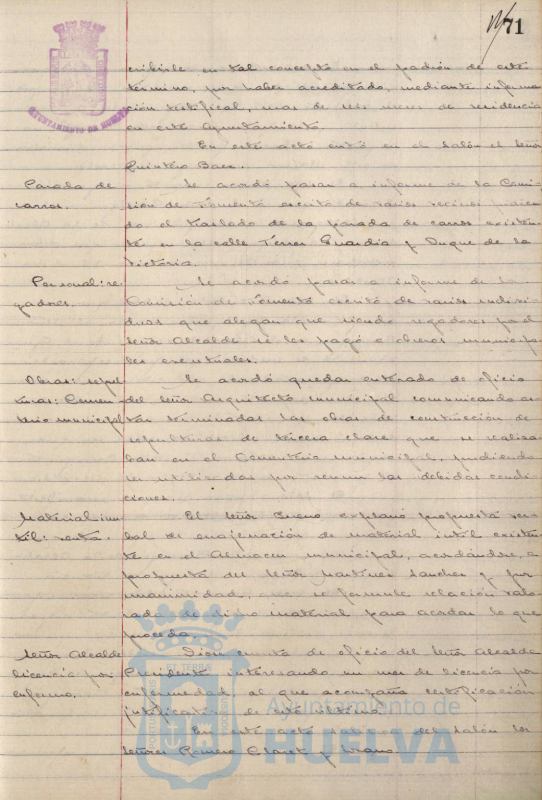 71
cribirle en tal concepto en el padrón de este
término, por haber acreditado, mediante informa
ción testifical, mas de seis meses de residencia
en este Ayuntamiento.
En este acto entró en el Salón el Señor
Quintero Baez.
Parada de
carros.
Se acordó pasar a informe de la Comi
sión de Fomento escrito de varios vecinos pidien
do el traslado de la parada de carros existen
te en la calle Guardia y Duque de la
Victoria.
Personal: re
gadores.
Se acordó pasar a informe de la
Comisión de Fomento escrito de varios indivi
duos que alegan que siendo regadores por el
Señor Alcalde se les pagó a obreros municipa
les eventuales.
Obras: sepul
turas: Cemen
terio municipal
Se acordó quedar enterado de oficio
del Señor Arquitecto municipal comunicando es
tar terminadas las obras de construcción de
sepulturas de tercera clase que se realiza
ban en el Cementerio municipal, pudiendo
ser utilizadas por reunir las debidas condi
ciones.
Material inu
til: venta.
El Señor explanó propuesta ver
bal de enajenación de material inutil existen
te en el Almacen municipal, acordándose, a
propuesta del Señor Martinez Sanchez y por
unanimidad, que se formule relación valo
rada de dicho material para acordar lo que
proceda.
Señor Alcalde
licencia por
enfermo.
Dióse cuenta de oficio del Señor Alcalde
Presidente interesando un mes de licencia por
enfermedad, al que acompaña certificación
justificativa de este último.
En este acto del Salón los
Señores Romero Claret y
AYUNTAMIENTO DE HUELVA
Ayuntamiento de
HUELVA